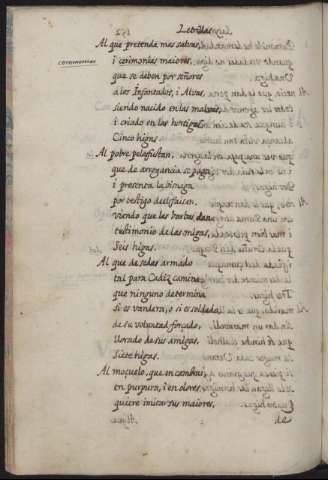 Letrillas
Al que pretende mas salvas,
ceremonias
i cerimonias maiores,
que se deben por señores
a los Infantados, i Alvas,
siendo nacido en las malvas,
i criado en las hortigas,
Cinco higas.
Al pobre pelafustan,
que de arrogancia se paga,
i presenta la bisnaga
por testigo del faisan,
viendo que las barbas dan
testimonio de las migas,
Seis higas.
Al que de sedas armado
tal para Cadiz camina,
que ninguno determina
si es vandera, o si es soldado,
de su voluntad forçado,
llorado de sus amigas,
Siete higas.
Al moçuelo, que en cambrai,
en purpura, i en olores
quiere imitar sus maiores,